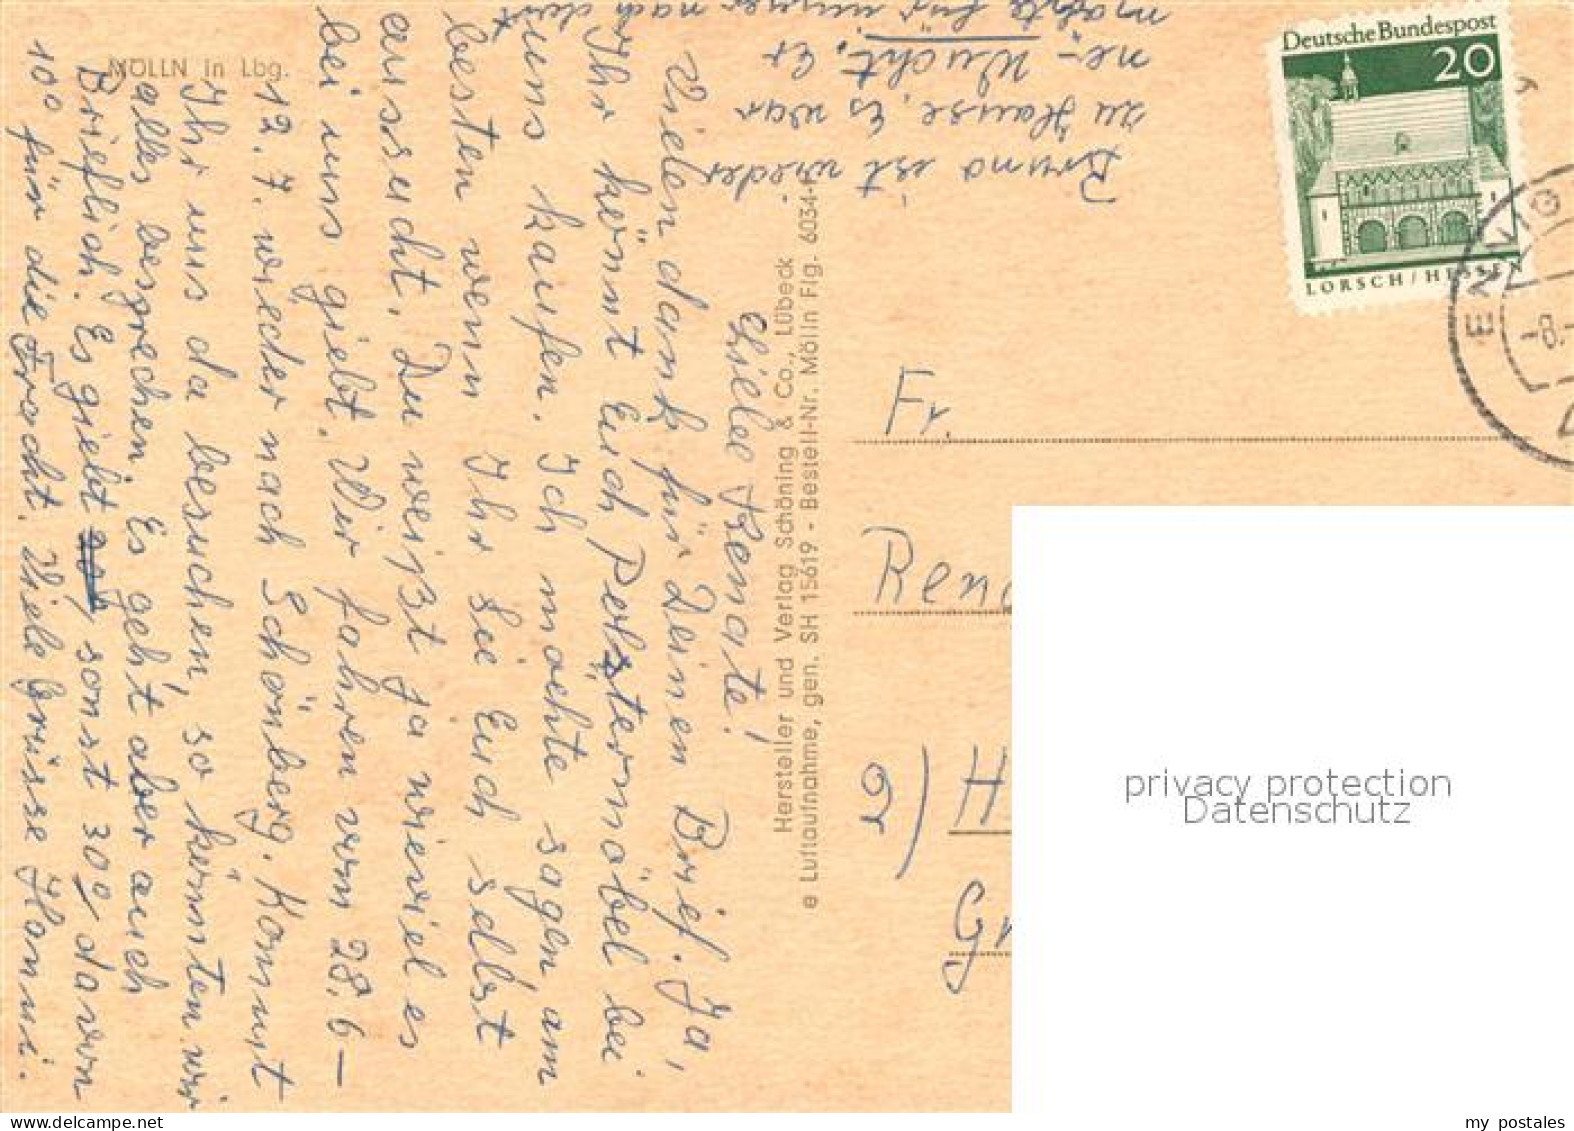 MÖLLN in Lbg.
Liebe Renate!
Vielen dank für Deinen Brief. Ja,
Ihr könnt Euch Polstermöbel bei
uns kaufen. Ich möchte sagen, am
besten wenn Ihr Sie Euch selbst
aussucht. Du weißt ja wieviel es
bei uns giebt. Wir fahren vom 28.6 –
12.7. wieder nach Schönberg. Kommt
Ihr uns da besuchen, so können wir
alles besprechen. Es geht aber auch
Brieflich. Es giebt sonst 30% davon
10% für die Fracht. Viele Grüsse Hanni.
Bruno ist wieder
zu Hause. Es war
ne - Wucht. Er
möchte für immer nach dort
Hersteller und Verlag Schöning & Co., Lübeck
e Luftaufnahme, gen. SH 15619 - Bestell-Nr. Mölln Flg. 6034-
Deutsche Bundespost
20
LORSCH/HESSEN
EN
-8.-
Fr.
Ren
2) H
Gr
privacy protection
Datenschutz
my postales